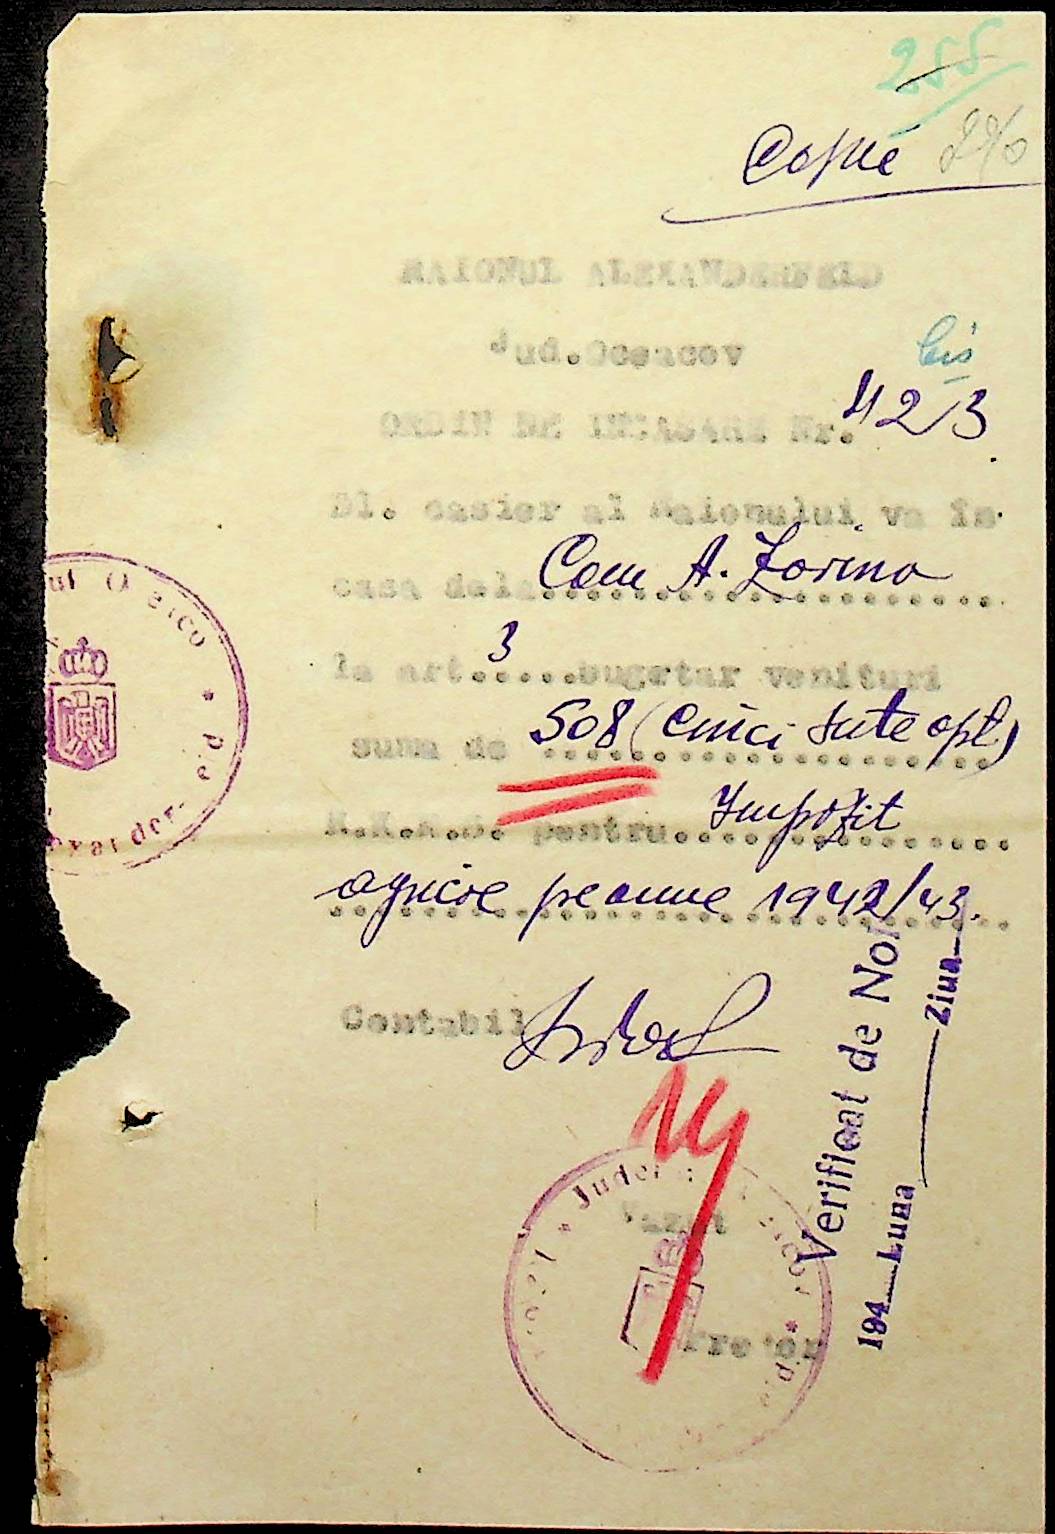 255
Copie
RAIONUL ALEXANDERFELD
Jud.Oceacov
bis
ORDIN DE INCASARE Nr. 423
Dl. casier al Raionului va în-
casa dela Com A. Zorino
la art. 3 bugetar venituri
suma de 508 (cinci sute opt)
R.K.K.S. pentru Impozit
agricol pe anul 1942/43.
Contabil
Verificat de Noi
194 Luna Ziua
Vazut
Pretor